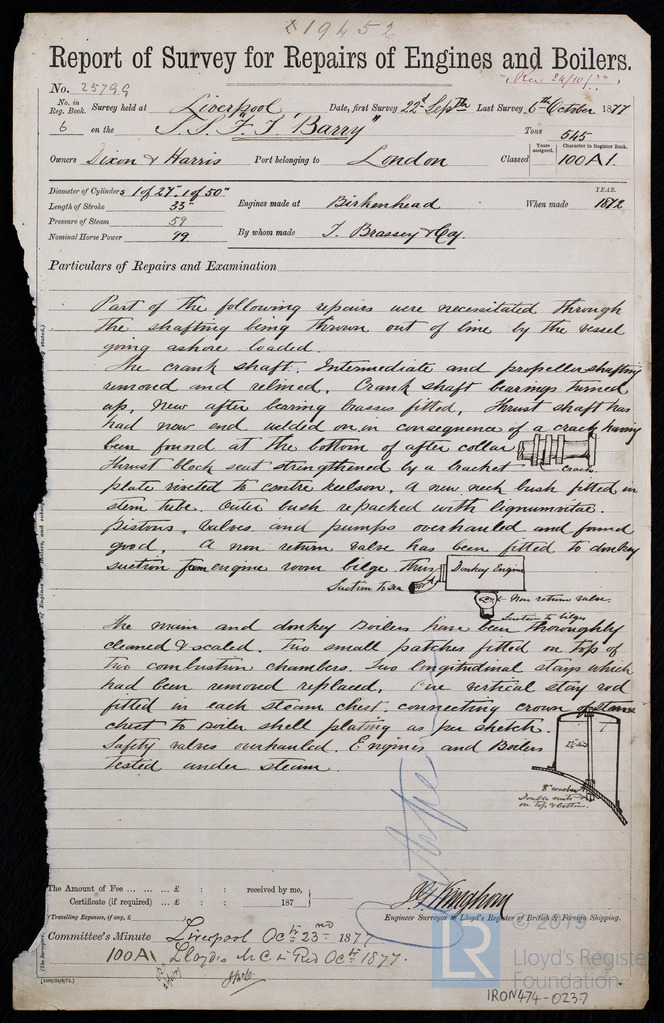 19452
Report of Survey for Repairs of Engines and Boilers.
No. 25799
Rec 24/10/77
No. in Reg. Book. 6 Survey held at Liverpool Date, first Survey 22d Septbr Last Survey 6th October 1877
on the T.S. "F. T. Barry" Tons 545
Owners Dixon & Harris Port belonging to London Classed Years assigned. Character in Register Book. 100A1.
Diameter of Cylinders 1 of 27" 1 of 50"
Length of Stroke 33"
Pressure of Steam 59
Nominal Horse Power 99
Engines made at Birkenhead When made YEAR. 1872
By whom made T. Brassey & Co.
Particulars of Repairs and Examination
Part of the following repairs were necessitated through
the shafting being thrown out of line by the vessel
going ashore loaded.
The crank shaft. Intermediate and propeller shafting
removed and relined. Crank shaft bearings turned
up. New after bearing brasses fitted. Thrust shaft has
had new end welded on in consequence of a crack having
been found at the bottom of after collar
crack
Thrust block seat strengthened by a bracket
plate riveted to centre keelson. A new neck bush fitted in
stern tube. Outer bush repacked with lignumvitae.
Pistons, valves and pumps overhauled and found
good. A non return valve has been fitted to donkey
suction from engine room bilge thus
Donkey Engine
Suction to sea
Non return valve.
Suction to bilges
The main and donkey Boilers have been thoroughly
cleaned & scaled. Two small patches fitted on top of
two combustion chambers. Two longitudinal stays which
had been removed replaced. One vertical stay rod
fitted in each steam chest, connecting crown of steam
chest to Boiler shell plating as per sketch.
Safety valves overhauled. Engines and Boilers
tested under steam.
8" washer
Double nuts
on top & bottom.
The Amount of Fee ... ... ... £ : : received by me,
Certificate (if required) ... £ : : 187
(Travelling Expenses, if any, £ )
Engineer Surveyor to Lloyd's Register of British & Foreign Shipping.
Committee's Minute Liverpool Octr 23rd 1877
100A1 Lloyds M C in Red Octr 1877.
© 2019
LR Lloyd's Register
Foundation
IRON474-0237